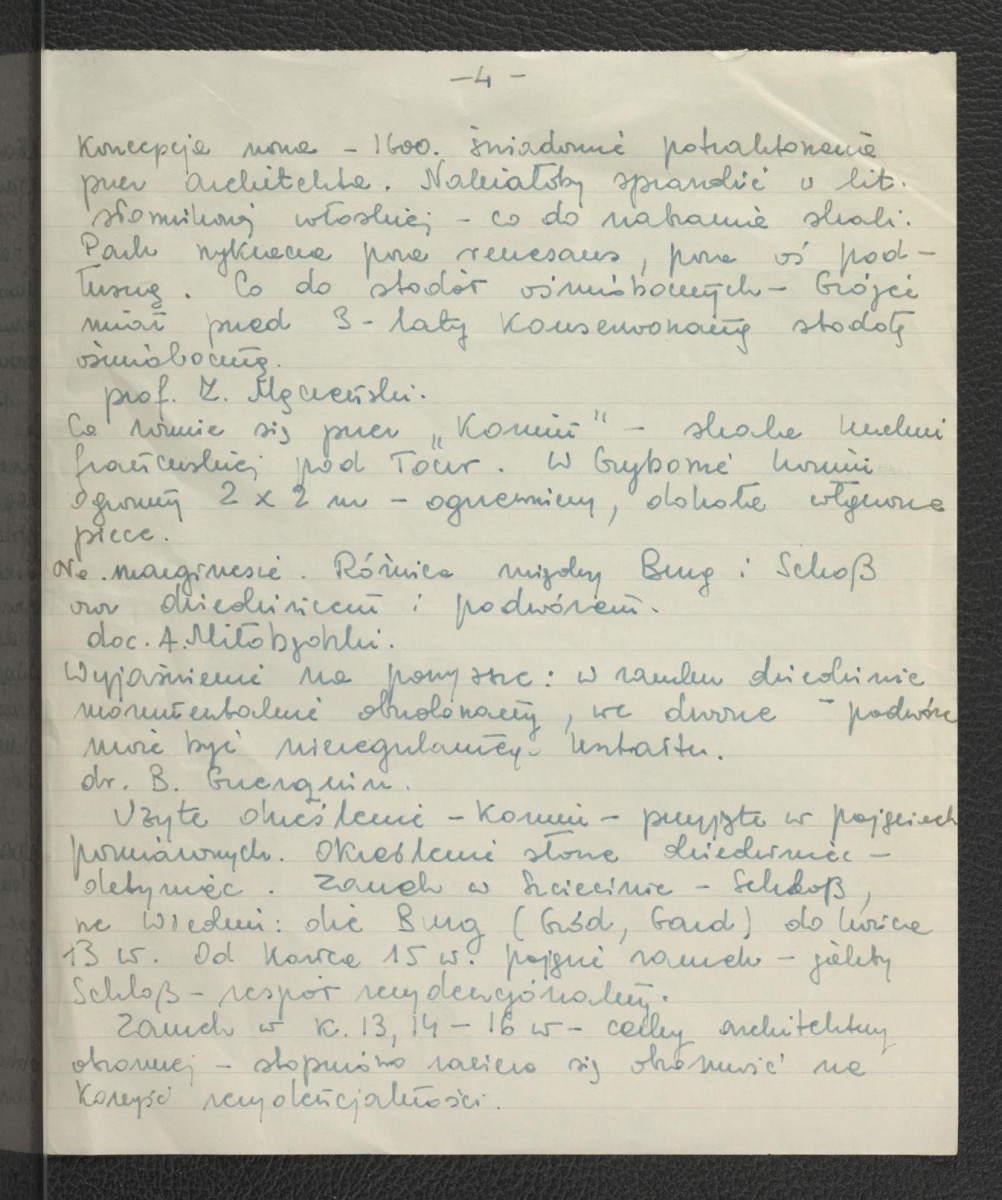 – 4 –
Koncepcja nowa – 1600. świadomie potraktowanie
przez architekta. Należałoby sprawdzić w lit.
włoskiej – co do nabrania skali.
Park wykracza poza renesans, poza oś pod-
łużną. Co do stodół ośmiobocznych – Grójec
miał przed 3-laty konserwowaną stodołę
ośmioboczną.
prof. Z. Mączeński.
Co rozumie się przez „Komin" – skala kuchni
francuskiej pod Tour. W Grybowie komin
ogromny 2 x 2 m – ogrzewczy, dokoła
piece.
Na marginesie. Różnica między Burg i Schoß
oraz dziedzińcem i podwórzem.
doc. A. Miłobędzki.
Wyjaśnienie na powyższe: w zamku dziedziniec
monumentalnie obudowany, we dworze – podwórze
może być nieregularnego kształtu.
dr. B. Guerquin.
Użyte określenie – Komin – przyjęte w pojęciach
pomiarowych. Określenie słowa dziedziniec –
detyniec. Zamek w Szczecinie – Schloß,
na Wiedni: die Burg (Gród, Gard) do końca
13 w. Od końca 15 w. pojęcie zamek – jakby
Schloß – zespół rezydencjonalny.
Zamek w k. 13, 14 – 16 w – cechy architektury
obronnej – stopniowo zaciera się obronność na
korzyść rezydencjalności.